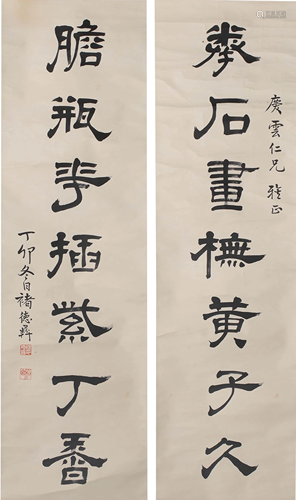 廣雲仁兄雅正
拳石畫橅黃子久
膽瓶花插紫丁香
丁卯冬日褚德彝